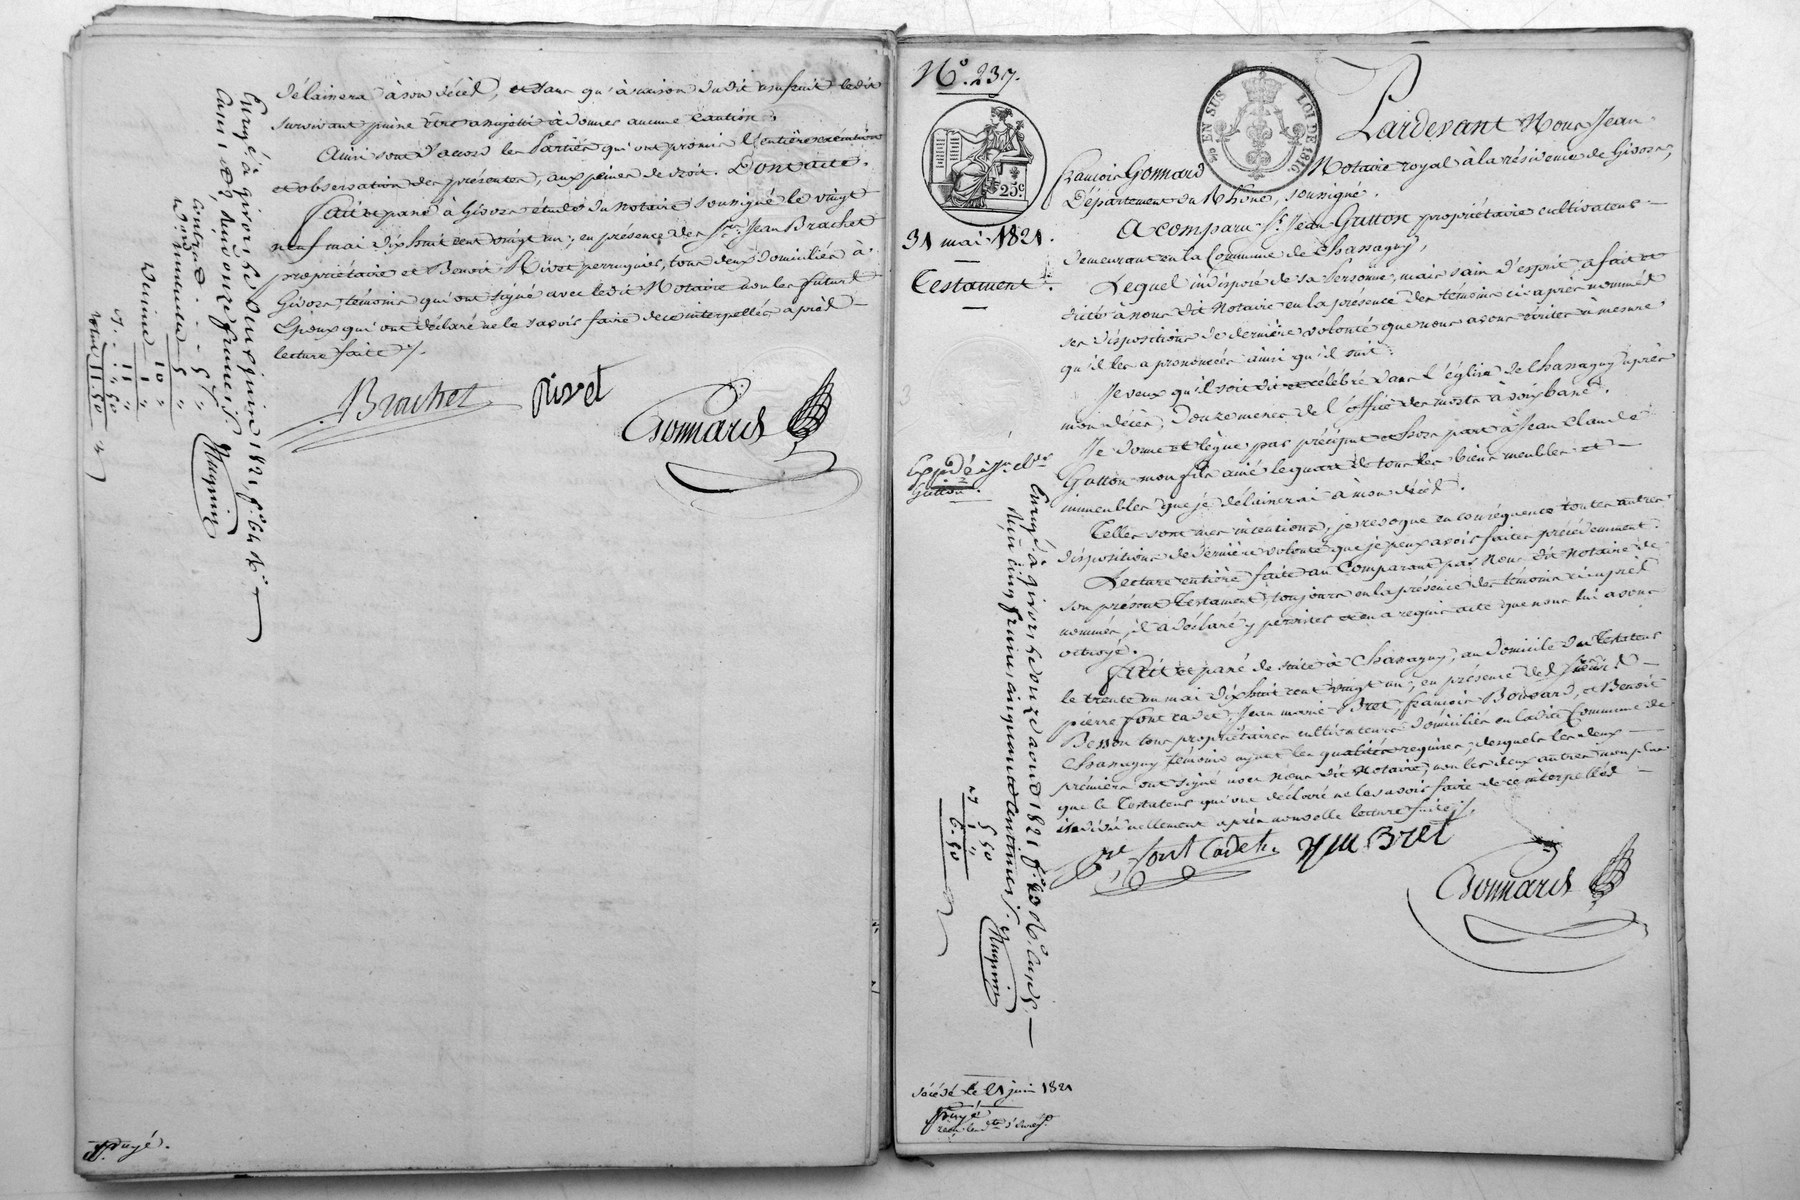 délaissera à son décès, et sans qu'à raison du dit usufruit ledit
survivant puisse être assujetti à donner aucune caution.
Ainsi sont d'accord les Parties qui ont promis l'entière exécution
et observation des présentes, aux peines de droit. Dont acte.
Fait et passé à Givors étude du notaire soussigné le vingt
neuf mai dix huit cent vingt un, en présence des Srs. Jean Brachet
propriétaire et Benoit Rivet perruquier, tous deux domiciliés à
Givors, témoins qui ont signé avec ledit Notaire non les futurs
Epoux qui ont déclaré ne le savoir faire de ce interpellés après
lecture faite
Brachet Rivet Gonnard
Enregé à Givors le deux juin 1821 fo. 64 Ro.
Reçu onze francs
Contrat 5
Donation 5
10
Décime 1
11
50
total 11.50
Payé.
No. 237.
25c
EN SUS LOI DE 1816
31 mai 1821.
Testament.
Pardevant Nous Jean
François Gonnard Notaire royal à la résidence de Givors,
Département du Rhône, soussigné.
A comparu Sr. Jean Gutton propriétaire cultivateur
demeurant en la Commune de Chassagny,
Lequel indisposé de sa personne, mais sain d'esprit a fait et
dicté à nous dit Notaire en la présence des témoins ci après nommés
ses dispositions de dernière volonté que nous avons écrites à mesure
qu'il les a prononcées ainsi qu'il suit:
Je veux qu'il soit dit et célébré dans l'église de Chassagny après
mon décès, douze messes de l'office des morts à voix basse.
Je donne et lègue par préciput et hors part à Jean Claude
Gutton mon fils ainé le quart de tous les biens meubles et
immeubles que je délaisserai à mon décès.
Expédié à Jn. Cde.
Gutton.
Telles sont mes intentions, je révoque en conséquence toutes autres
dispositions de dernière volonté que je peux avoir faites précédemment.
Lecture entière faite au Comparant par Nous dit Notaire de
son présent Testament, toujours en la présence des témoins ci après
nommés, il a déclaré y persister et en a requis acte que nous lui avons
octroyé.
Fait et passé de suite à Chassagny, au domicile du Testateur
le trente un mai dix huit cent vingt un, en présence des Sieurs
pierre font cadet, Jean marie Bret, françois Boissard, et Benoit
Besson tous propriétaires cultivateurs domiciliés en ladite Commune de
Chassagny témoins ayant les qualités requises, desquels les deux
premiers ont signé avec Nous dit Notaire, non les deux autres non plus
que le Testateur qui ont déclaré ne le savoir faire de ce interpellés
individuellement après nouvelle lecture faite
pre font Cadet. J M Bret
Gonnard
Enregé à Givors le onze aout 1821 fo. 23 Ro.
Reçu cinq francs cinquante centimes
5 50
6.50
décédé le 21 juin 1821
Payé